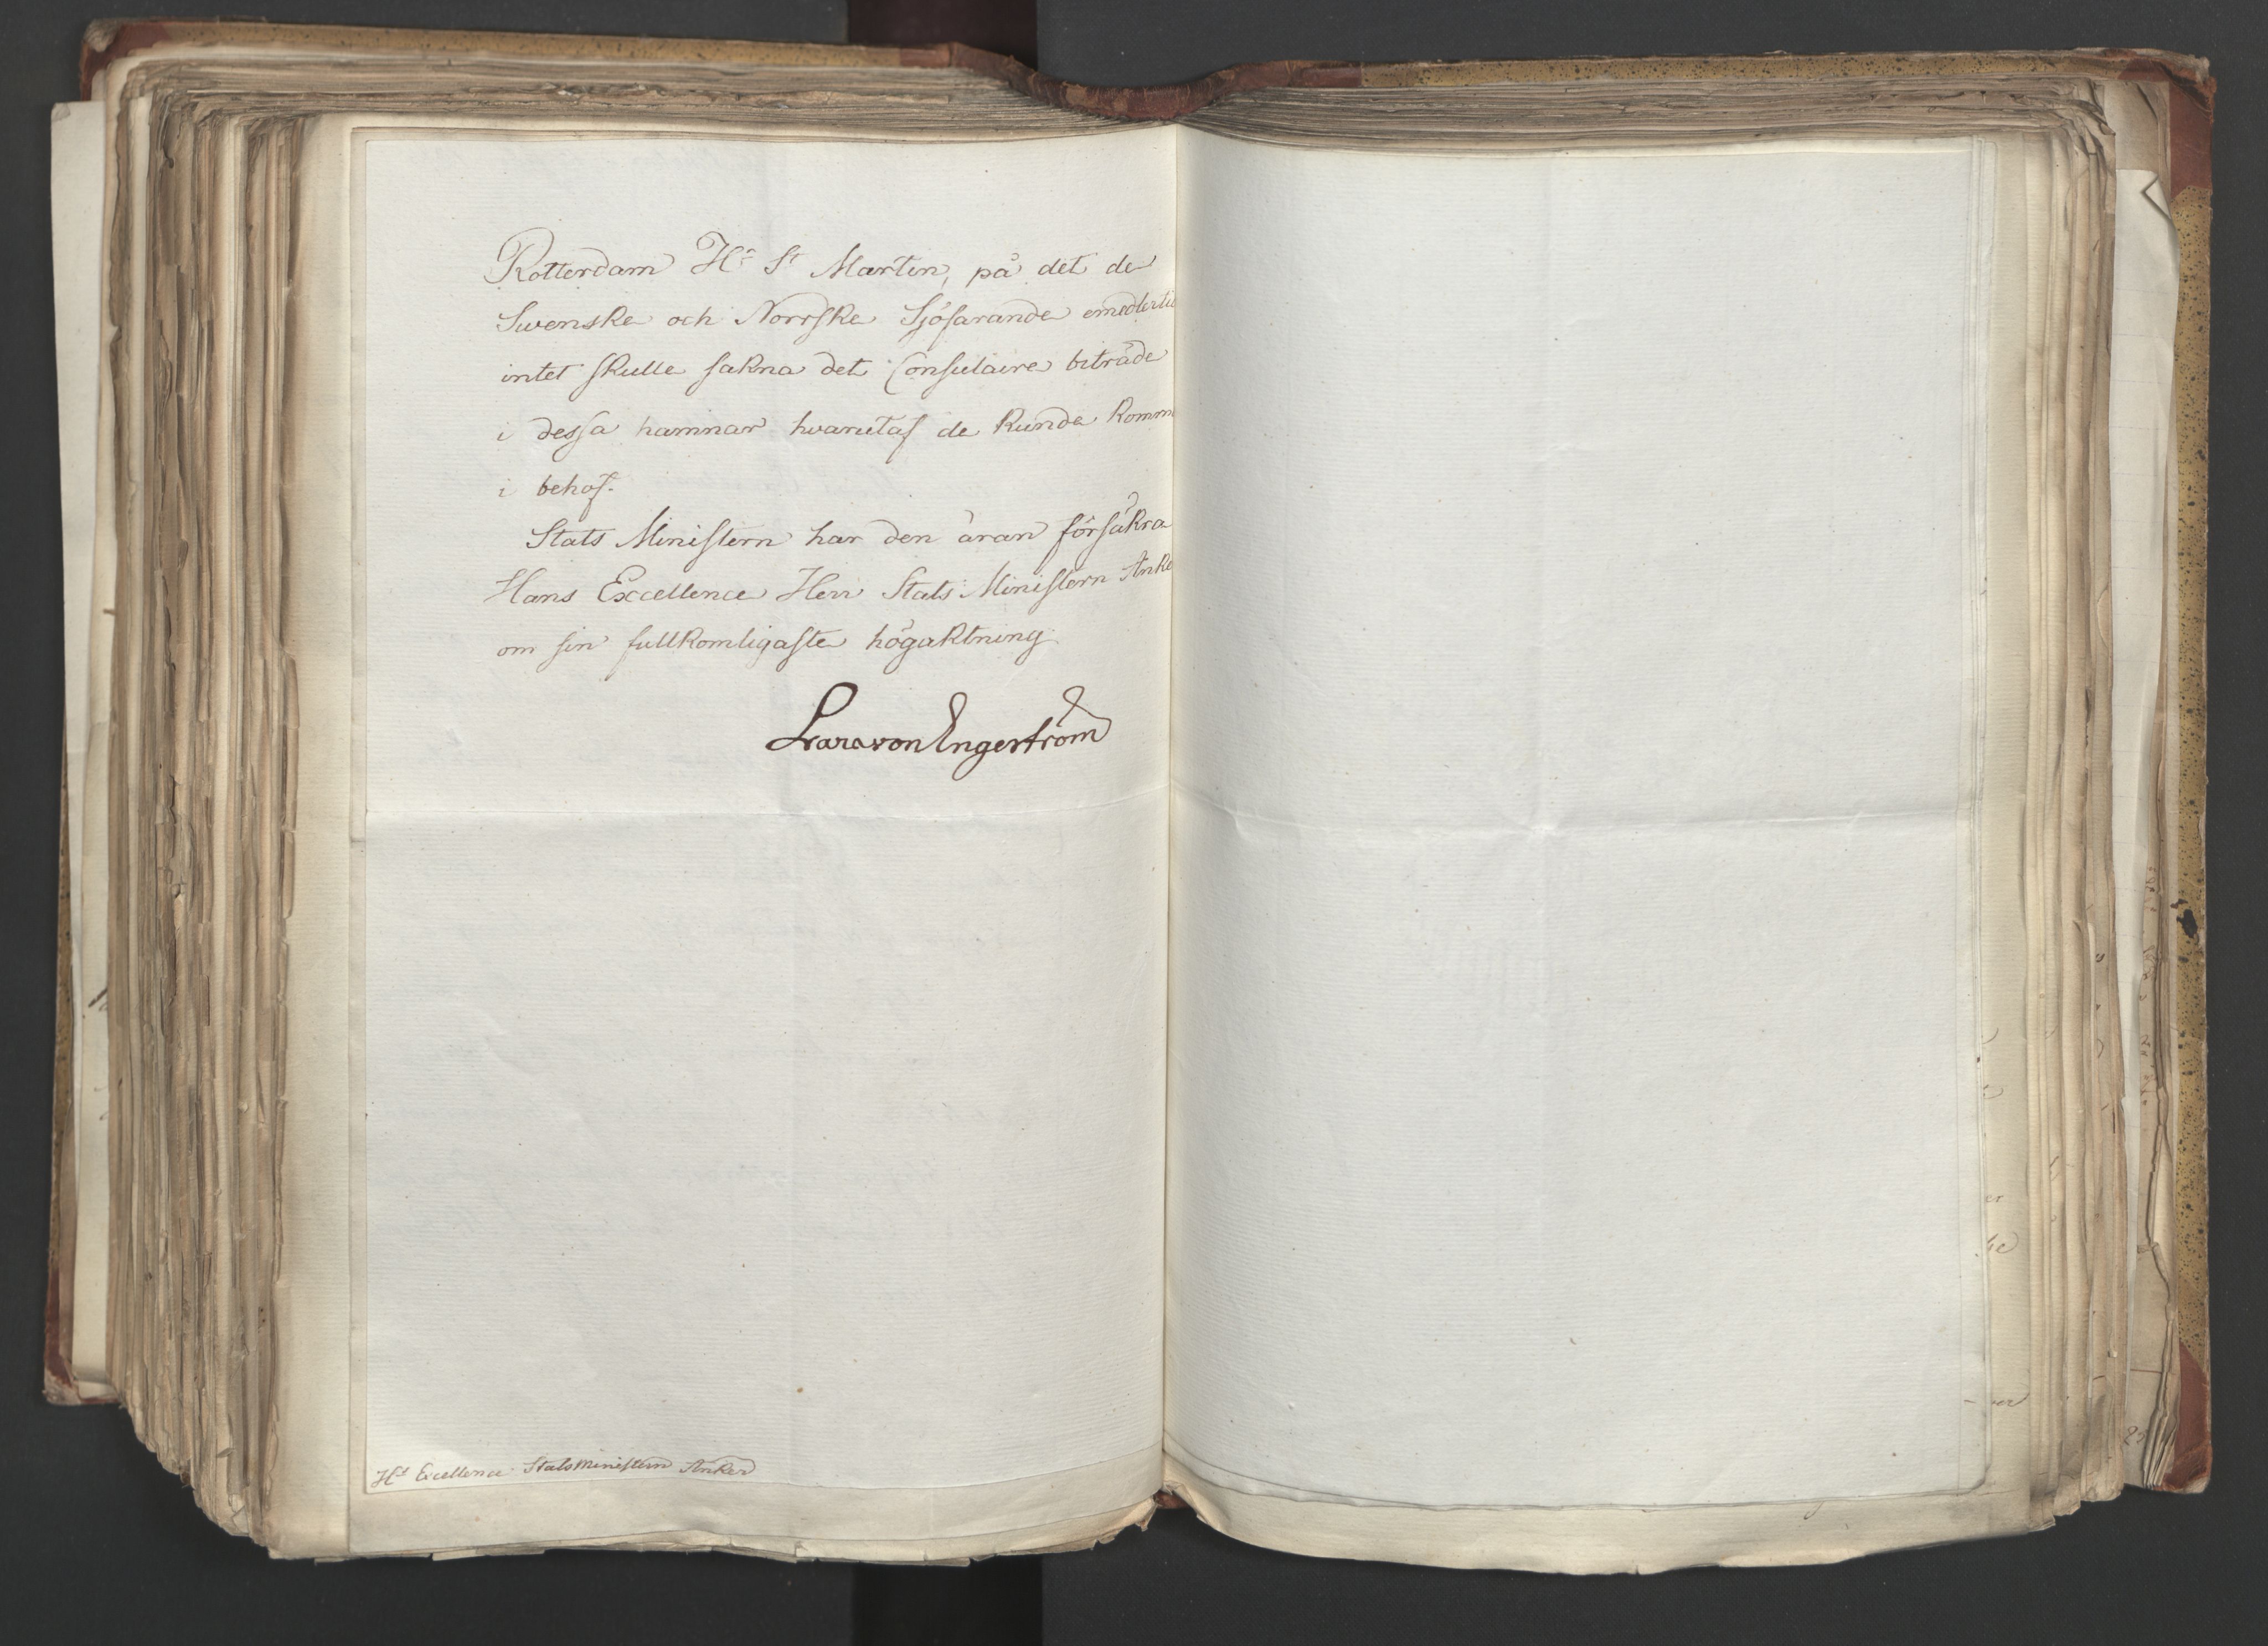 Rotterdam Hr St Martin, på det de
Swenske och Norrske Sjöfarande emedlertid
intet skulle sakna det Consulaire biträde
i dessa hamnar hvarutaf de kunde komm
i behof.
Stats Ministern har den äran försäkra
Hans Excellence Herr Stats Ministern Anke
om sin fullkomligaste högaktning
Lars von Engeström
Hs Excellence Statsministern Anker